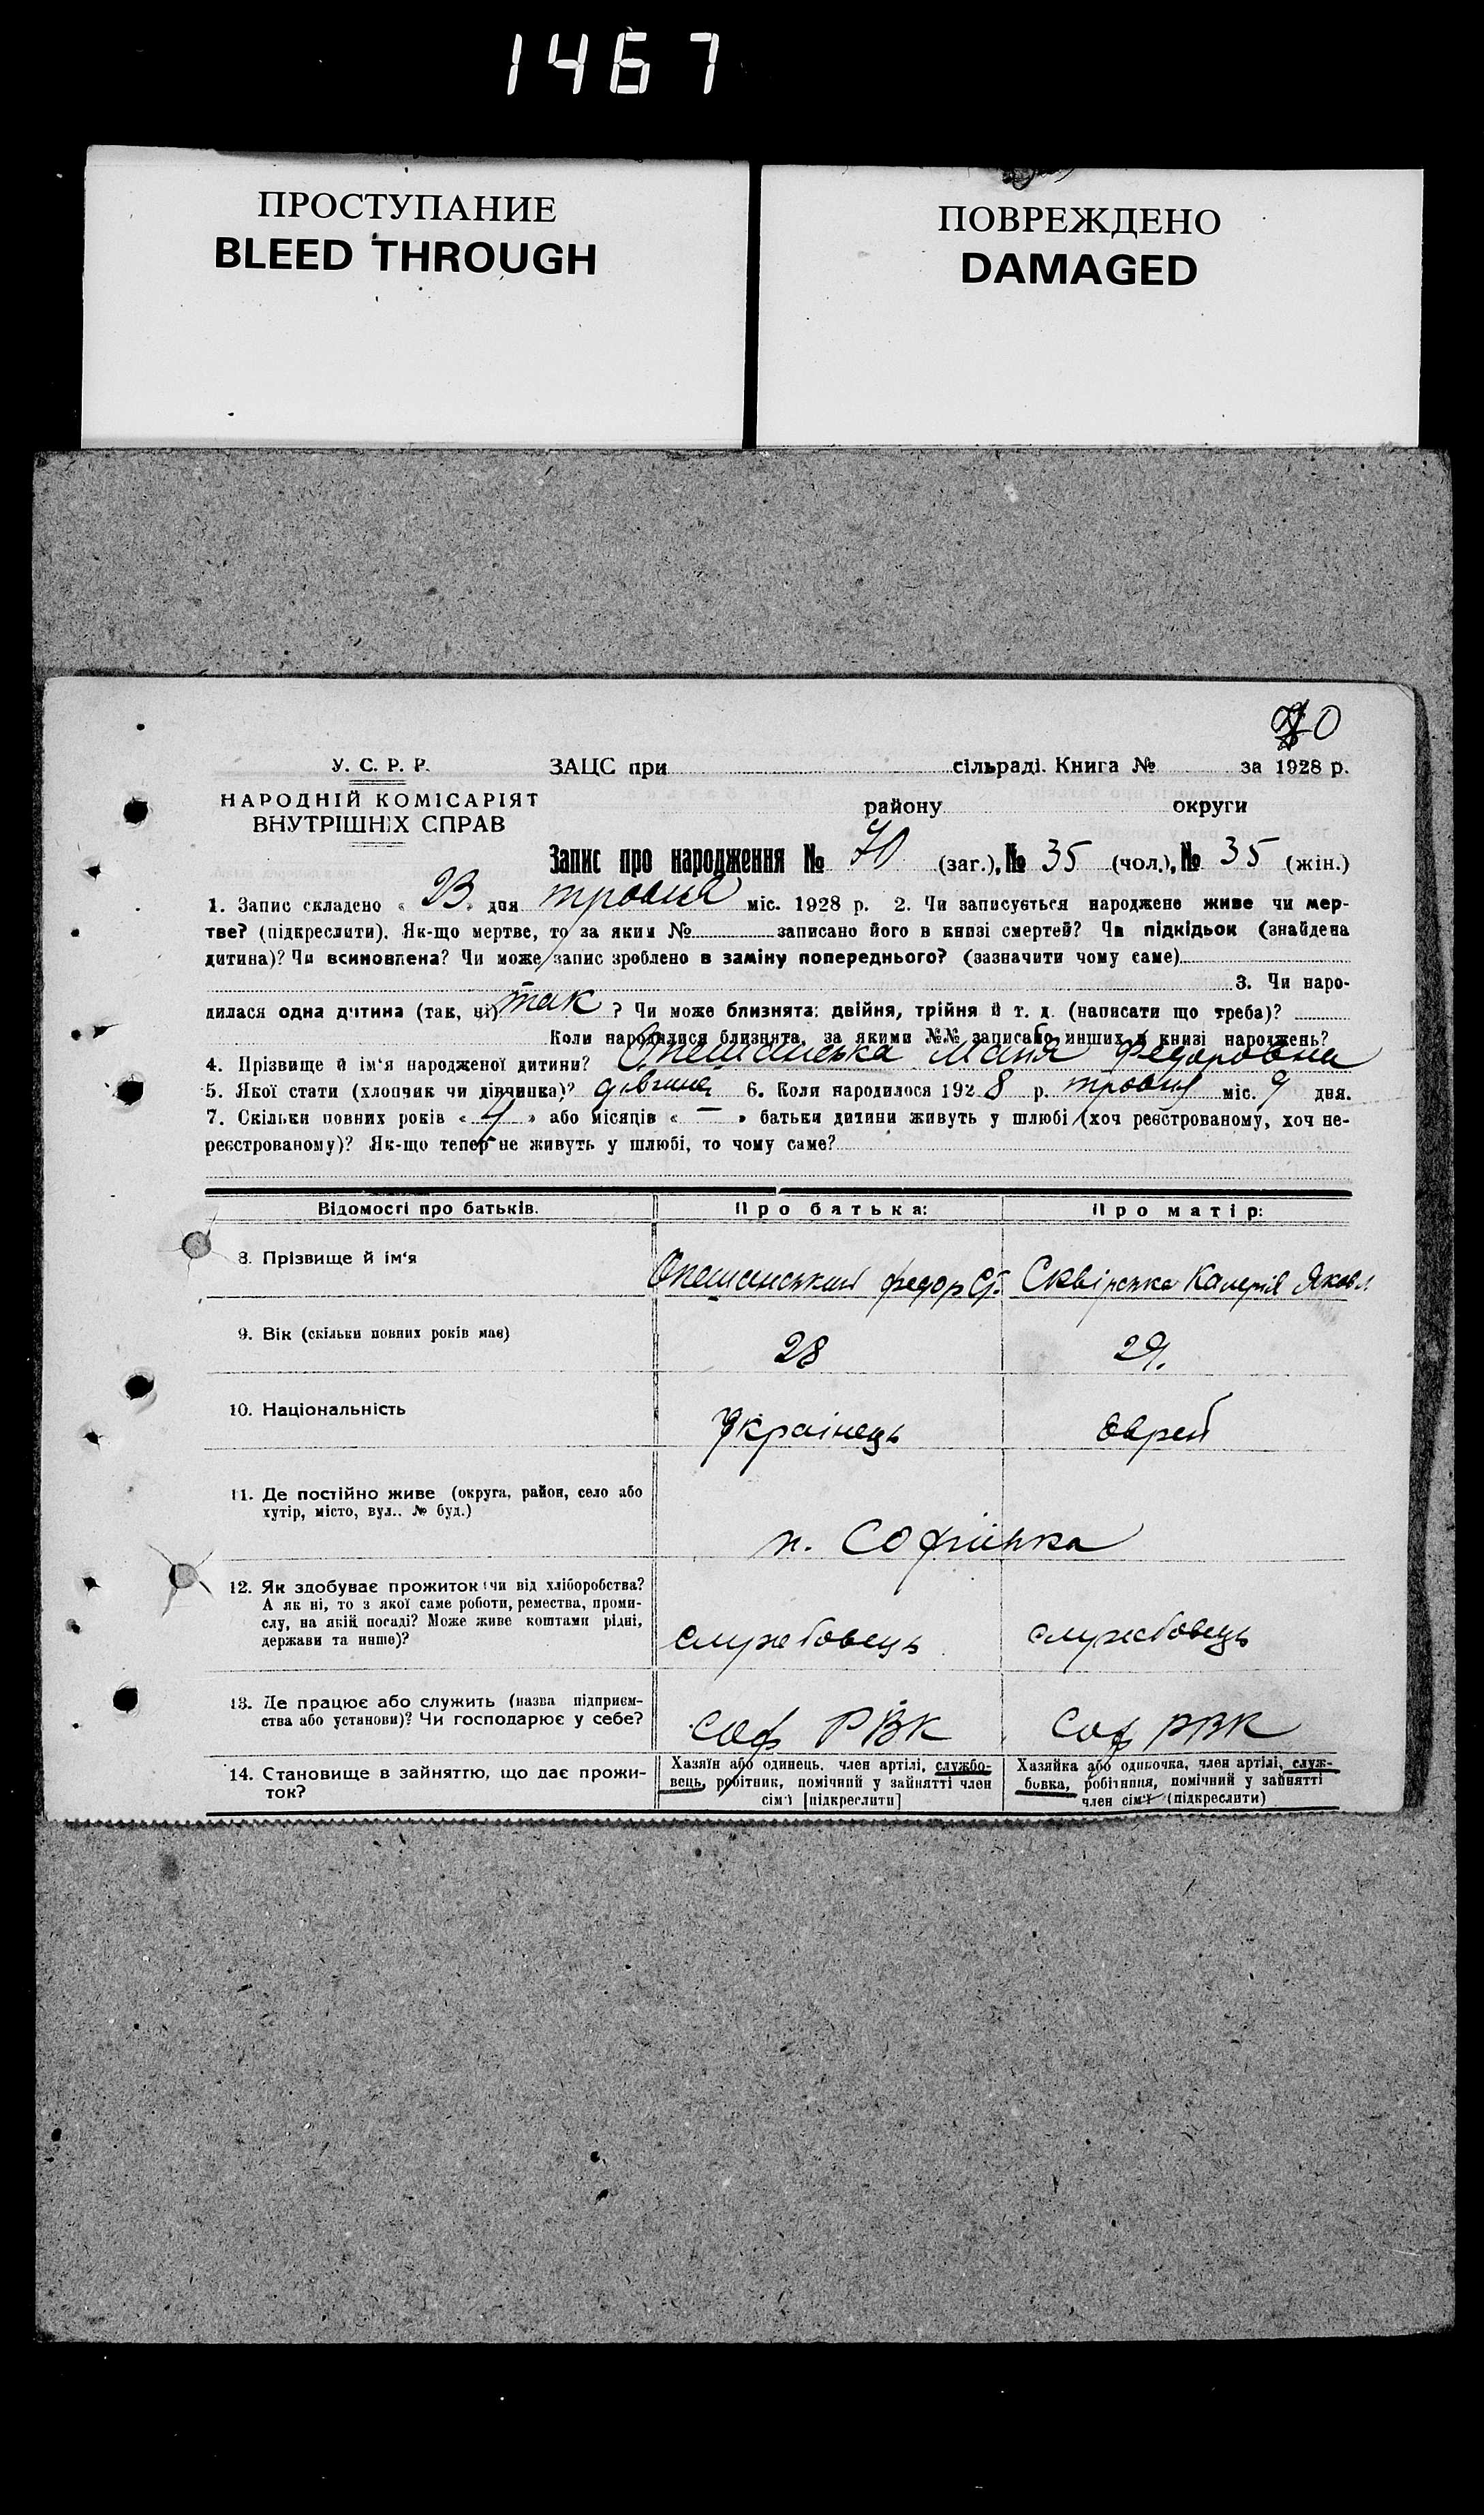 1467
ПРОСТУПАНИЕ
BLEED THROUGH
ПОВРЕЖДЕНО
DAMAGED
70
У. С. Р. Р.
ЗАЦС при сільраді. Книга № за 1928 р.
НАРОДНІЙ КОМІСАРІЯТ
району округи
ВНУТРІШНІХ СПРАВ
Запис про народження № 70 (заг.), № 35 (чол.), № 35 (жін.)
1. Запис складено « 23 » дня травня міс. 1928 р. 2. Чи записується народжене живе чи мер-
тве? (підкреслити). Як-що мертве, то за яким № записано його в книзі смертей? Чи підкідьок (знайдена
дитина)? Чи всиновлена? Чи може запис зроблено в заміну попереднього? (зазначити чому саме)
3. Чи наро-
дилася одна дитина (так, ні) так ? Чи може близнята: двійня, трійня й т. д. (написати що треба)?
Коли народилися близнята, за якими №№ записано инших в книзі народжень?
4. Прізвище й ім'я народженої дитини? Опешанська Маня Федоровна
5. Якої стати (хлопчик чи дівчинка)? дівчина 6. Коли народилося 1928 р. травня міс. 9 дня.
7. Скільки повних років « 4 » або місяців « — » батьки дитини живуть у шлюбі (хоч реєстрованому, хоч не-
реєстрованому)? Як-що тепер не живуть у шлюбі, то чому саме?
Відомості про батьків. Про батька: Про матір:
8. Прізвище й ім'я Опешанський Федор Сквірська Калерія Яковл
9. Вік (скільки повних років має) 28 29.
10. Національність Українець Єврей
11. Де постійно живе (округа, район, село або
хутір, місто, вул.. № буд.)
Софіївка
12. Як здобуває прожиток (чи від хліборобства?
А як ні, то з якої саме роботи, ремества, проми-
слу, на якій посаді? Може живе коштами рідні,
держави та инше)?
службовець службовець
13. Де працює або служить (назва підприєм-
ства або установи)? Чи господарює у себе?
Соф РВК Соф РВК
14. Становище в зайняттю, що дає прожи-
ток?
Хазяїн або одинець, член артілі, службо-
вець, робітник, помічний у зайнятті член
сім'ї [підкреслити]
Хазяйка або одиночка, член артілі, служ-
бовка, робітниця, помічний у зайнятті
член сім'ї (підкреслити)